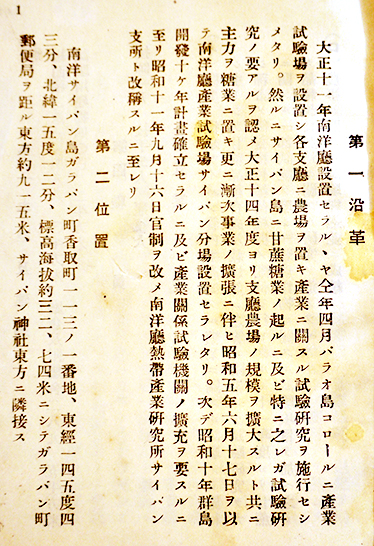 1
第一 沿革
大正十一年南洋廳設置セラルヽヤ仝年四月パラオ島コロールニ產業
試驗場ヲ設置シ各支廳ニ農場ヲ置キ產業ニ關スル試驗硏究ヲ施行セシ
メタリ。然ルニサイパン島ニ甘蔗糖業ノ起ルニ及ビ特ニ之レガ試驗硏
究ノ要アルヲ認メ大正十四年度ヨリ支廳農場ノ規模ヲ擴大スルト共ニ
主力ヲ糖業ニ置キ更ニ漸次事業ノ擴張ニ伴ヒ昭和五年六月十七日ヲ以
テ南洋廳產業試驗場サイパン分場設置セラレタリ。次デ昭和十年群島
開發十ヶ年計畫確立セラルニ及ビ產業關係試驗機關ノ擴充ヲ要スルニ
至リ昭和十一年九月十六日官制ヲ改メ南洋廳熱帶產業硏究所サイパン
支所ト改稱スルニ至レリ
第二 位置
南洋サイパン島ガラパン町香取町一一三ノ一番地、東經一四五度四
三分、北緯一五度一二分、標高海拔約三二、七四米ニシテガラパン町
郵便局ヲ距ル東方約九一五米、サイパン神社東方ニ隣接ス